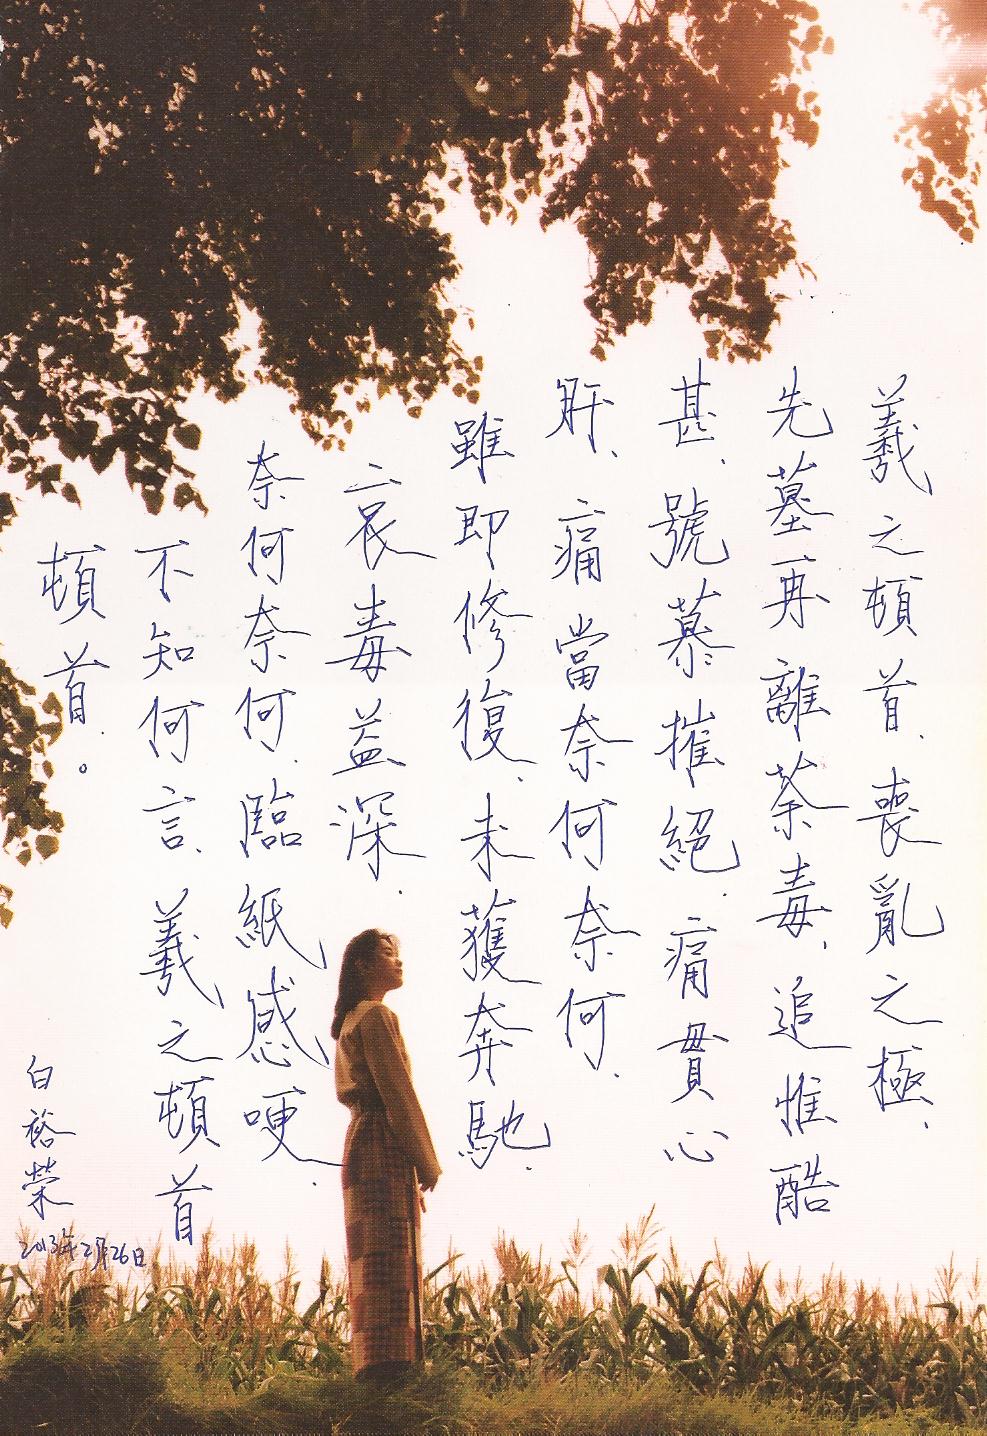 羲之頓首、喪亂之極、
先墓再離荼毒、追惟酷
甚、號慕摧絕、痛貫心
肝、痛當奈何奈何、
雖即修復、未獲奔馳、
哀毒益深、
奈何奈何、臨紙感哽、
不知何言、羲之頓首
頓首、。
白裕榮
2013年2月26日